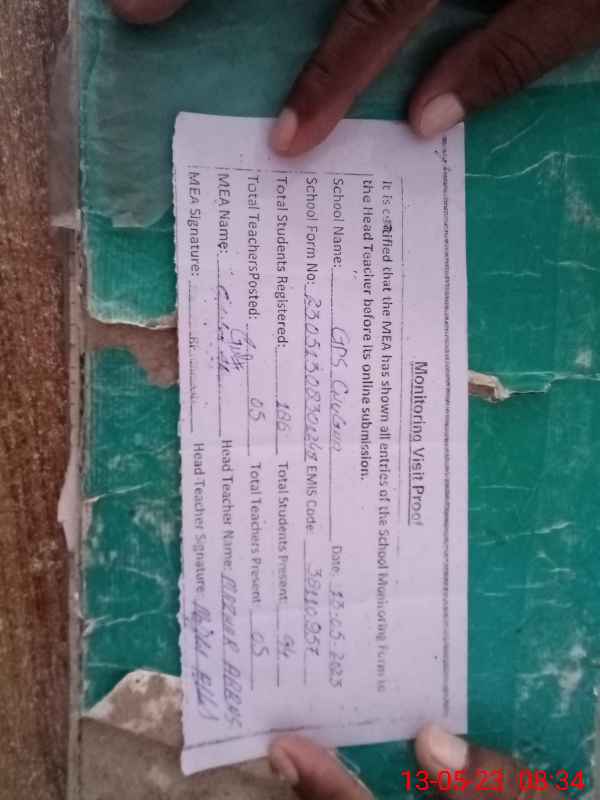 Monitoring Visit Proof
It is certified that the MEA has shown all entries of the School Monitoring Form to
the Head Teacher before its online submission.
School Name: GPS Date: 13-05-2023
School Form No: EMIS Code: 38110957
Total Students Registered: 186 Total Students Present: 94
Total TeachersPosted: 05 Total Teachers Present: 05
MEA Name: Head Teacher Name: MAZHAR ABBAS
MEA Signature: Head Teacher Signature:
13-05-23 08:34